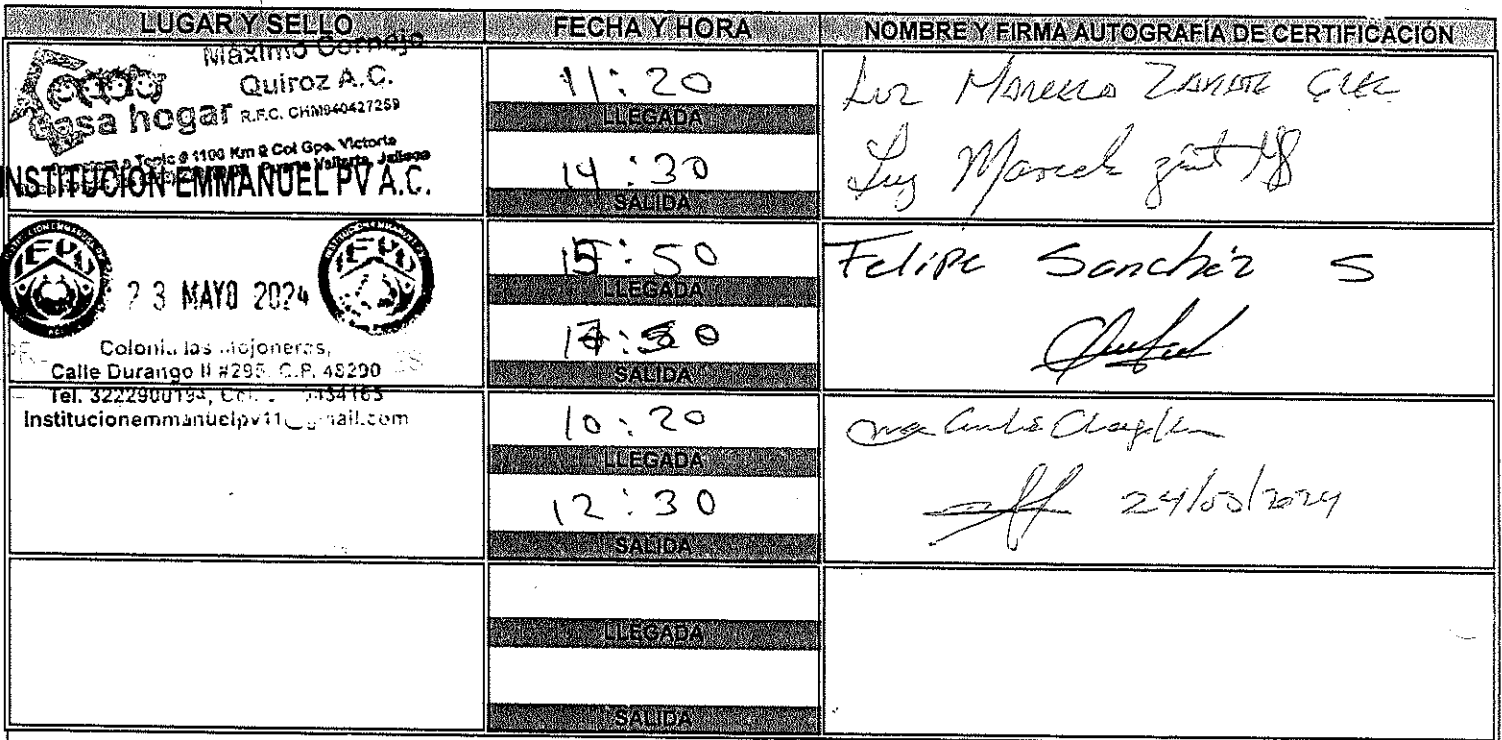 LUGAR Y SELLO FECHA Y HORA NOMBRE Y FIRMA AUTOGRAFÍA DE CERTIFICACIÓN
Máximo Cornejo
Quiroz A.C.
Casa hogar R.F.C. CHM940427259
Tepic # 1100 Km 9 Col Gpe. Victoria
Puerto Vallarta, Jalisco
11:20
LLEGADA
14:30
SALIDA
Luz Marcela Zarate
Luz Marcela
INSTITUCIÓN EMMANUEL PV A.C.
23 MAYO 2024
Colonia las Mojoneras,
Calle Durango II #295, C.P. 48290
Tel. 3222900194,
Institucionemmanuelpv11@gmail.com
15:50
LLEGADA
SALIDA
Felipe Sanchéz S
10:20
LLEGADA
12:30
SALIDA
24/05/2024
LLEGADA
SALIDA